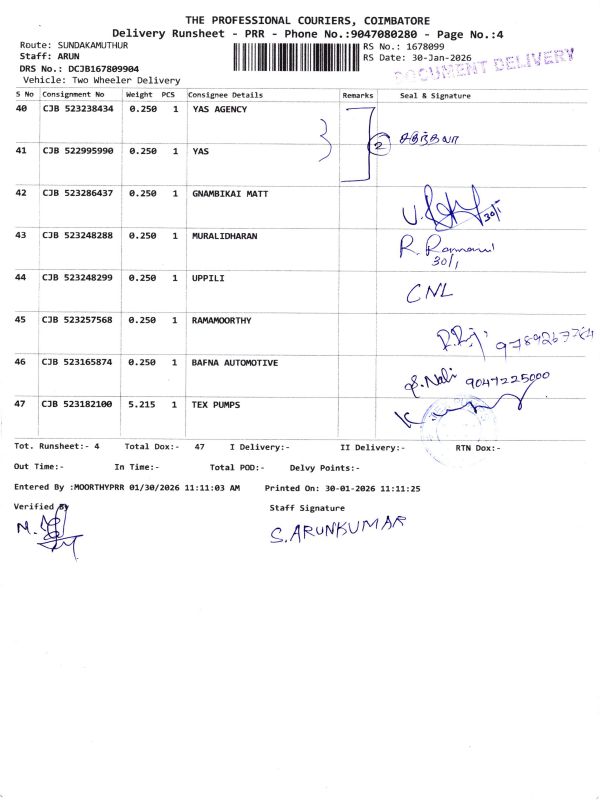 THE PROFESSIONAL COURIERS, COIMBATORE
Delivery Runsheet - PRR - Phone No.:9047080280 - Page No.:4
Route: SUNDAKAMUTHUR
RS No.: 1678099
Staff: ARUN
RS Date: 30-Jan-2026
DRS No.: DCJB167809904
DOCUMENT DELIVERY
Vehicle: Two Wheeler Delivery
S No Consignment No Weight PCS Consignee Details Remarks Seal & Signature
40 CJB 523238434 0.250 1 YAS AGENCY
2
41 CJB 522995990 0.250 1 YAS
42 CJB 523286437 0.250 1 GNAMBIKAI MATT
30/1
43 CJB 523248288 0.250 1 MURALIDHARAN
30/1
44 CJB 523248299 0.250 1 UPPILI
CNL
45 CJB 523257568 0.250 1 RAMAMOORTHY
46 CJB 523165874 0.250 1 BAFNA AUTOMOTIVE
9047225000
47 CJB 523182100 5.215 1 TEX PUMPS
Tot. Runsheet:- 4 Total Dox:- 47 I Delivery:- II Delivery:- RTN Dox:-
Out Time:- In Time:- Total POD:- Delvy Points:-
Entered By :MOORTHYPRR 01/30/2026 11:11:03 AM Printed On: 30-01-2026 11:11:25
Verified By Staff Signature
S. ARUNKUMAR